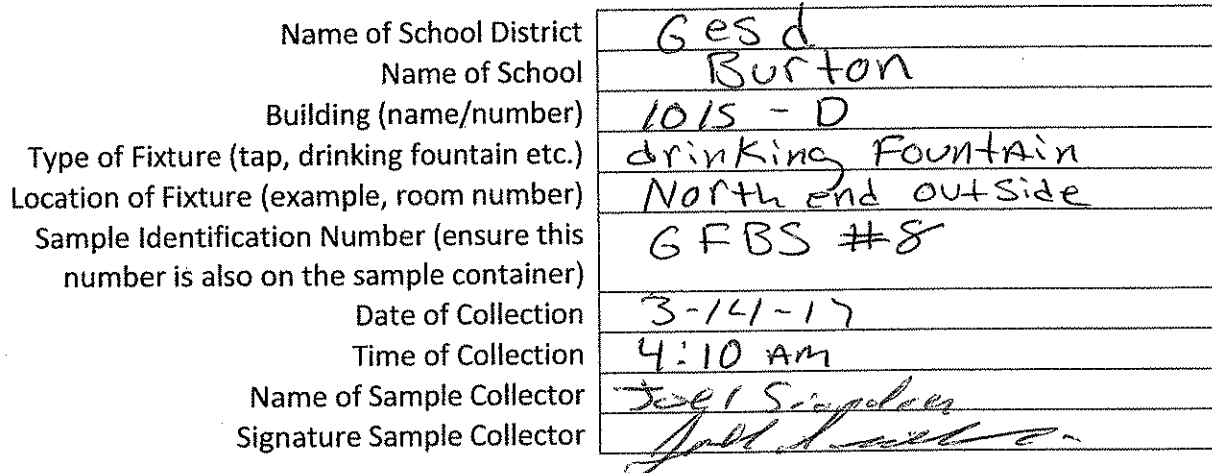 Name of School District Gesd
Name of School Burton
Building (name/number) 1015 - D
Type of Fixture (tap, drinking fountain etc.) drinking Fountain
Location of Fixture (example, room number) North end outside
Sample Identification Number (ensure this GFBS #8
number is also on the sample container)
Date of Collection 3-14-17
Time of Collection 4:10 AM
Name of Sample Collector Joel
Signature Sample Collector